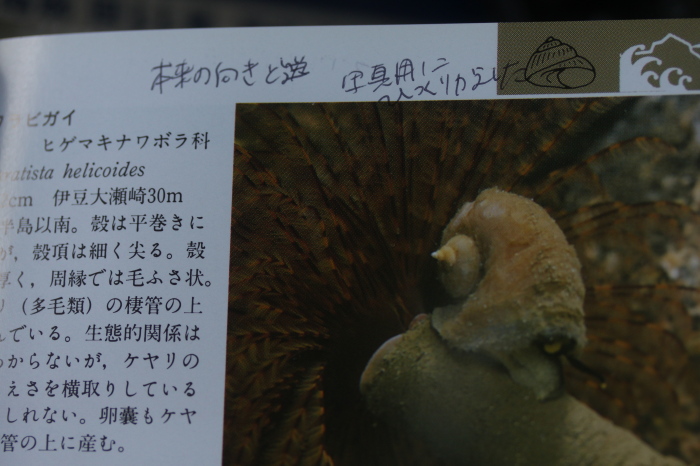 本来の向きと逆
写真用に
ビガイ
ヒゲマキナワボラ科
atista helicoides
cm 伊豆大瀬崎30m
半島以南。殻は平巻きに
が，殻頂は細く尖る。殻
厚く，周縁では毛ふさ状。
リ（多毛類）の棲管の上
んでいる。生態的関係は
からないが，ケヤリの
えさを横取りしている
しれない。卵嚢もケヤ
管の上に産む。